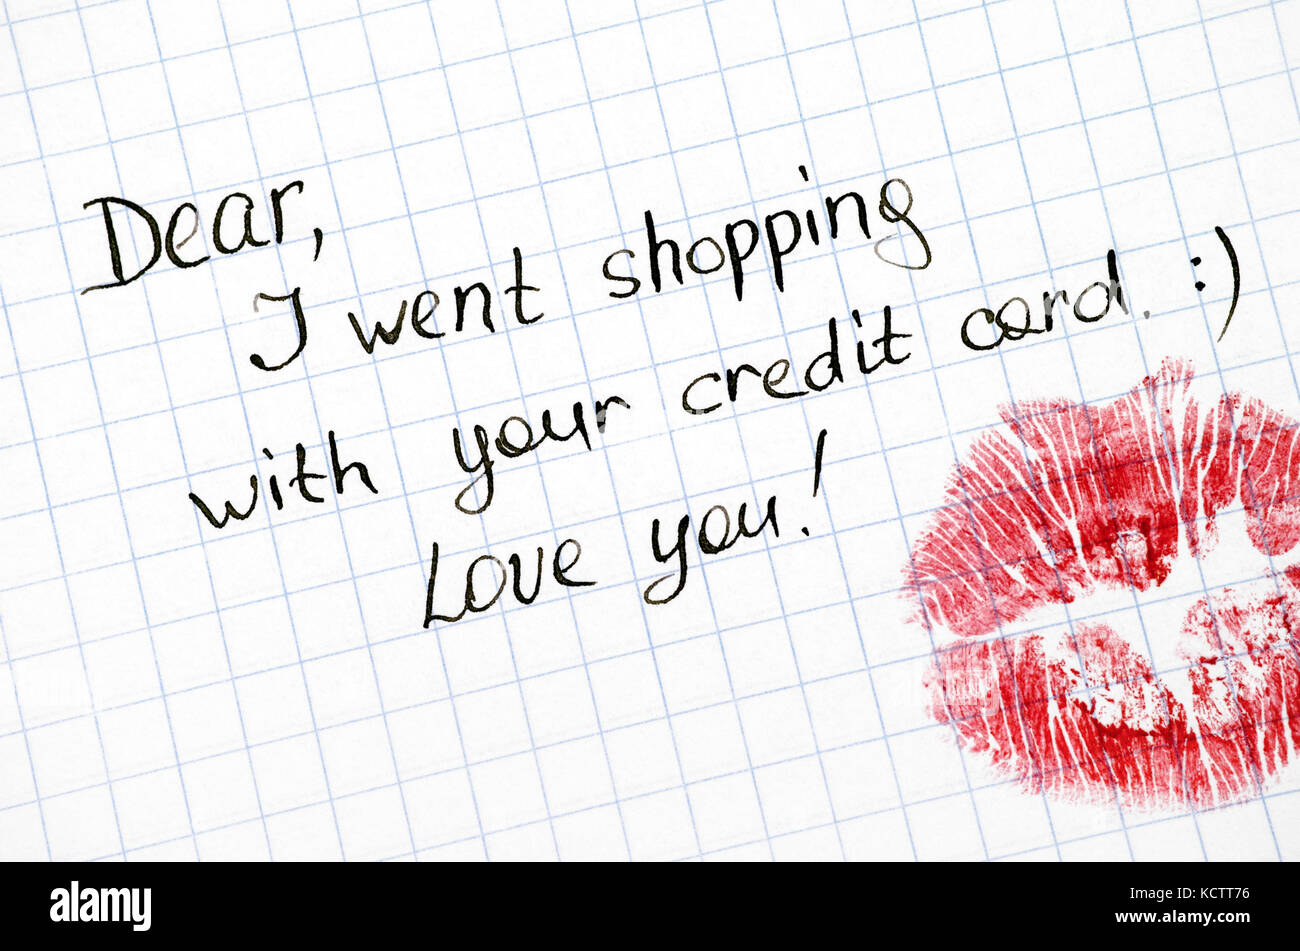 Dear,
I went shopping
with your credit card. :)
Love you!
alamy
Image ID: KCTT76
www.alamy.com